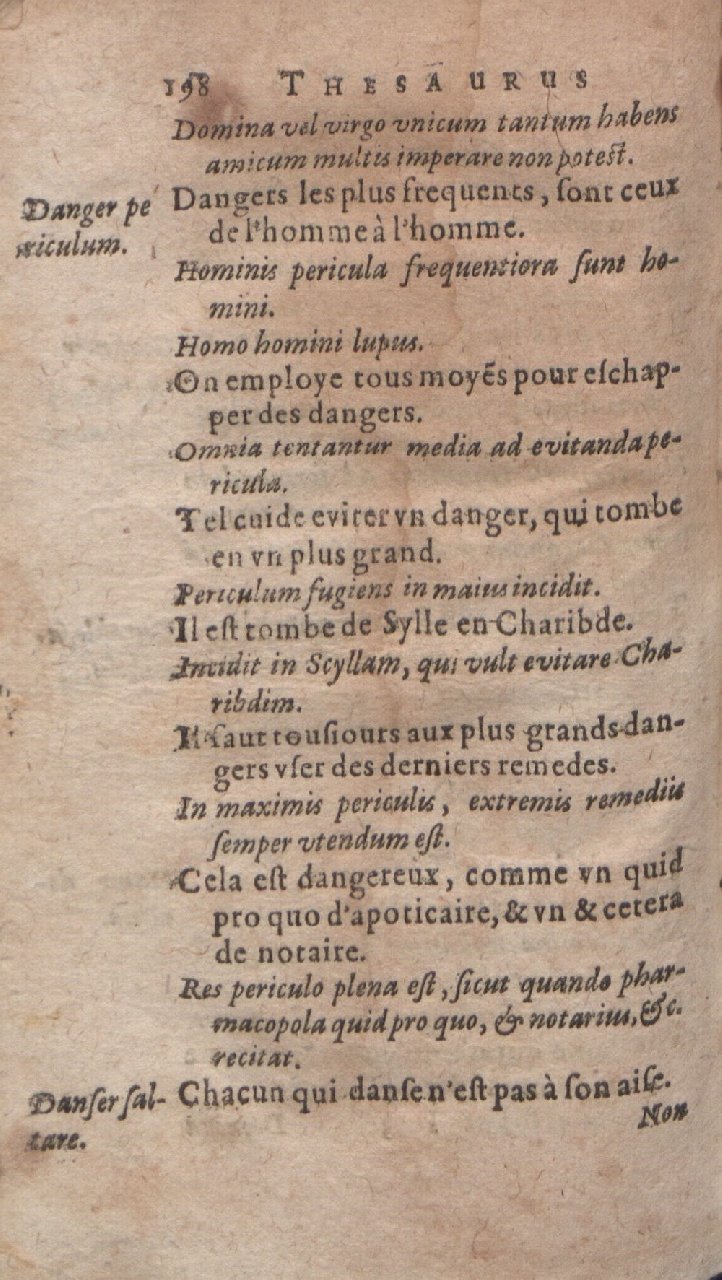 198 THESAURUS
Domina vel virgo vnicum tantum habens
amicum multis imperare non potest.
Danger pe
riculum.
Dangers les plus frequents, ſont ceux
de l'homme à l'homme.
Hominis pericula frequentiora ſunt ho-
mini.
Homo homini lupus.
On employe tous moyẽs pour eſchap-
per des dangers.
Omnia tentantur media ad evitanda pe-
ricula.
Tel cuide eviter vn danger, qui tombe
en vn plus grand.
Periculum fugiens in maius incidit.
Il eſt tombe de Sylle en Charibde.
Incidit in Scyllam, qui vult evitare Cha-
ribdim.
Il faut touſiours aux plus grands dan-
gers vſer des derniers remedes.
In maximis periculis, extremis remediis
ſemper vtendum eſt.
Cela eſt dangereux, comme vn quid
pro quo d'apoticaire, & vn & cetera
de notaire.
Res periculo plena eſt, ſicut quando phar-
macopola quid pro quo, & notarius, &c.
recitat.
Danſer ſal-
tare.
Chacun qui danſe n'eſt pas à ſon aiſe.
Non